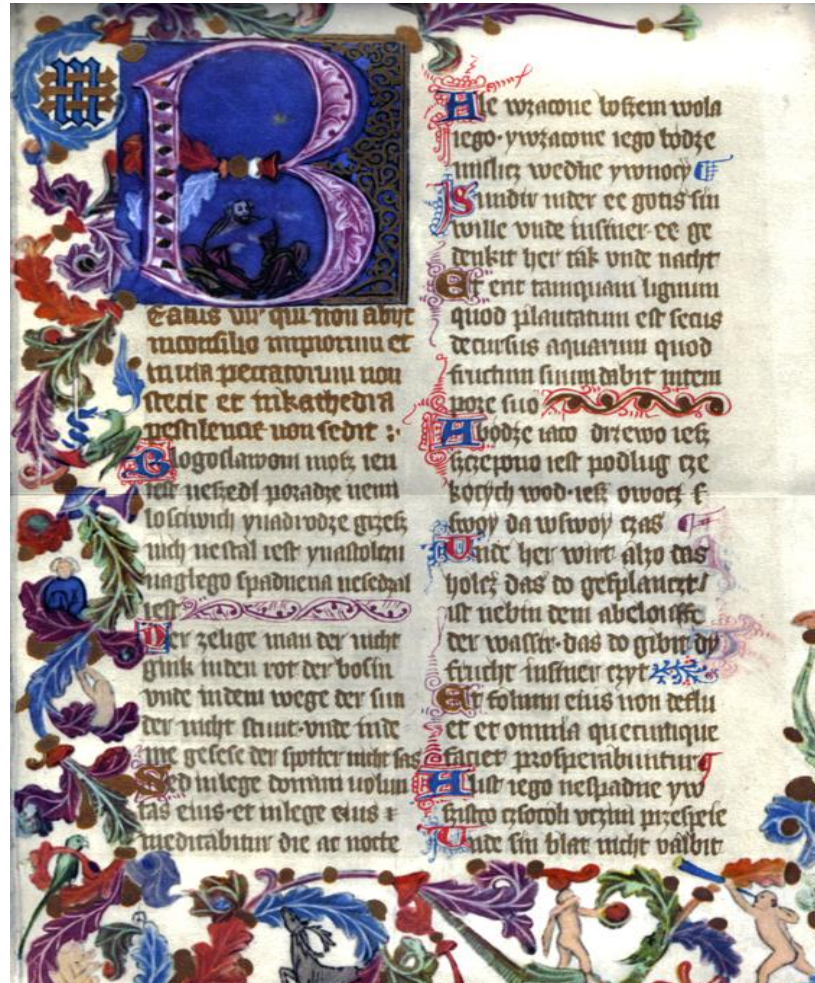 B
eatus vir qui non abijt
inconsilio impiorum et
in uia peccatorum non
stetit et inkathedra
pestilencie non sedit :·
Blogoslawoni møsz ien
iest neszedl poradze nemi
losciwich ynadrodze grzesz
nich nestal iest ynastolczu
naglego spadnena nesedzal
iest
Der zelige man der nicht
gink inden rot der bosin
vnde indem wege der sun
der nicht stunt·vnde inde
me gesese der spotter nicht sas
Sed inlege domini uolun
tas eius·et inlege eius
meditabitur die ac nocte
Ale wzacone boszem wola
iego·ywzacone iego bødze
mislicz wedne ywnocy
Sundir inder ee gotis sin
wille vnde insiner ee ge
denkit her tak vnde nacht
Et erit tamquam lignum
quod plantatum est secus
decursus aquarum quod
fructum suum dabit intem
pore suo
Abødze iaco drzewo iesz
szczepono iest podlug cze
køcych wod·iesz owocz
swoy da wswoy czas
Unde her wirt alzo das
holcz das do gesplanczt
ist nebin dem abelouffe
der wassir·das do gibit dy
frucht insiner czyt
Et folium eius non deflu
et et omnia quecumque
faciet prosperabuntur
Alist iego nespadne yw
szistko czsocoli vczini przespeie
Unde sin blat nicht valbit